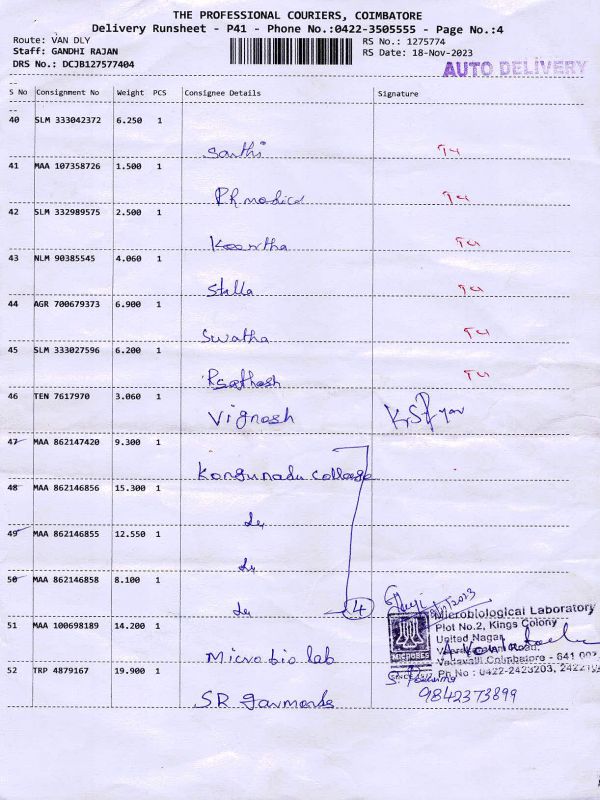 THE PROFESSIONAL COURIERS, COIMBATORE
Delivery Runsheet - P41 - Phone No.:0422-3505555 - Page No.:4
Route: VAN DLY
Staff: GANDHI RAJAN
DRS No.: DCJB127577404
RS No.: 1275774
RS Date: 18-Nov-2023
AUTO DELIVERY
S No Consignment No Weight PCS Consignee Details Signature
40 SLM 333042372 6.250 1
Santhi
41 MAA 107358726 1.500 1
42 SLM 332989575 2.500 1
43 NLM 90385545 4.060 1
Stella
44 AGR 700679373 6.900 1
Swatha
45 SLM 333027596 6.200 1
46 TEN 7617970 3.060 1
Vignesh
47 MAA 862147420 9.300 1
Kongunadu College
48 MAA 862146856 15.300 1
49 MAA 862146855 12.550 1
50 MAA 862146858 8.100 1
4
51 MAA 100698189 14.200 1
Microbiological Laboratory
Plot No.2, Kings Colony
United Nagar,
Vadavalli Coimbatore - 641
Ph.No : 0422-2423203,
MICROBES
Microbio lab
52 TRP 4879167 19.900 1
9842373899
SR Garments